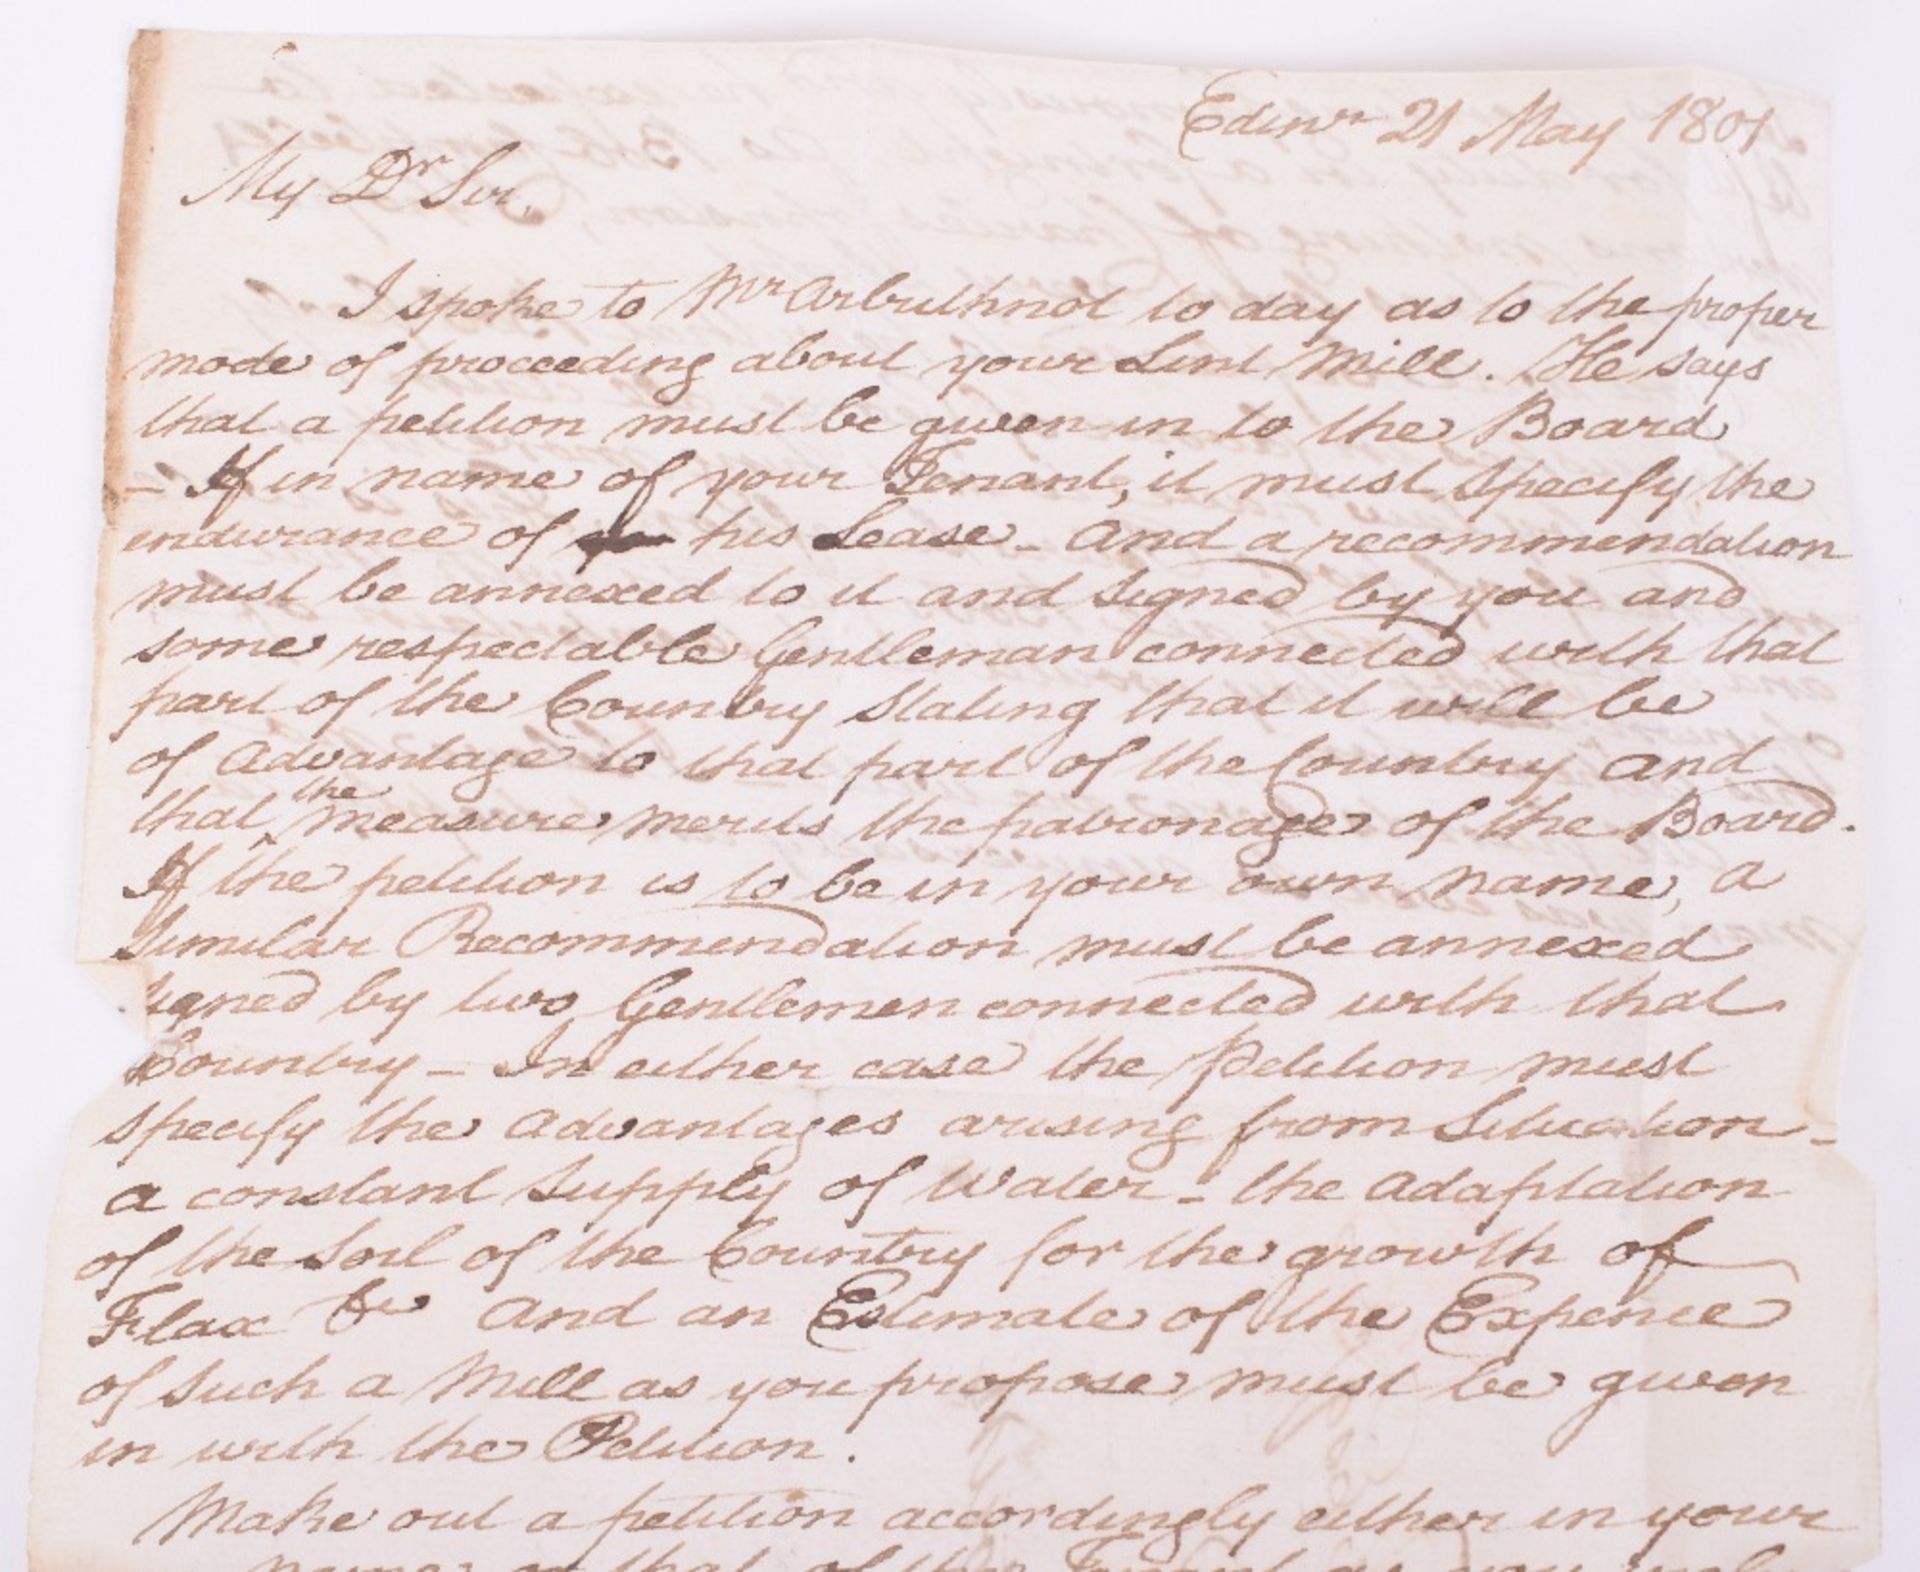 Edinr 21 May 1801
My Dr Sir,
I spoke to Mr Arbuthnot to day as to the proper
mode of proceeding about your Lint Mill. He says
that a petition must be given in to the Board
- If in name of your Tenant, it must specify the
endurance of his Lease - And a recommendation
must be annexed to it and signed by you and
some respectable Gentleman connected with that
part of the Country stating that it will be
of advantage to that part of the Country and
that the measure merits the patronage of the Board.
If the petition is to be in your own name, a
similar Recommendation must be annexed
signed by two Gentlemen connected with that
Country - In either case the Petition must
specify the advantages arising from Situation -
a constant supply of Water - the adaptation
of the Soil of the Country for the growth of
Flax &c And an Estimate of the Expence
of such a Mill as you propose must be given
in with the Petition.
Make out a petition accordingly either in your
name or that of the Tenant as you